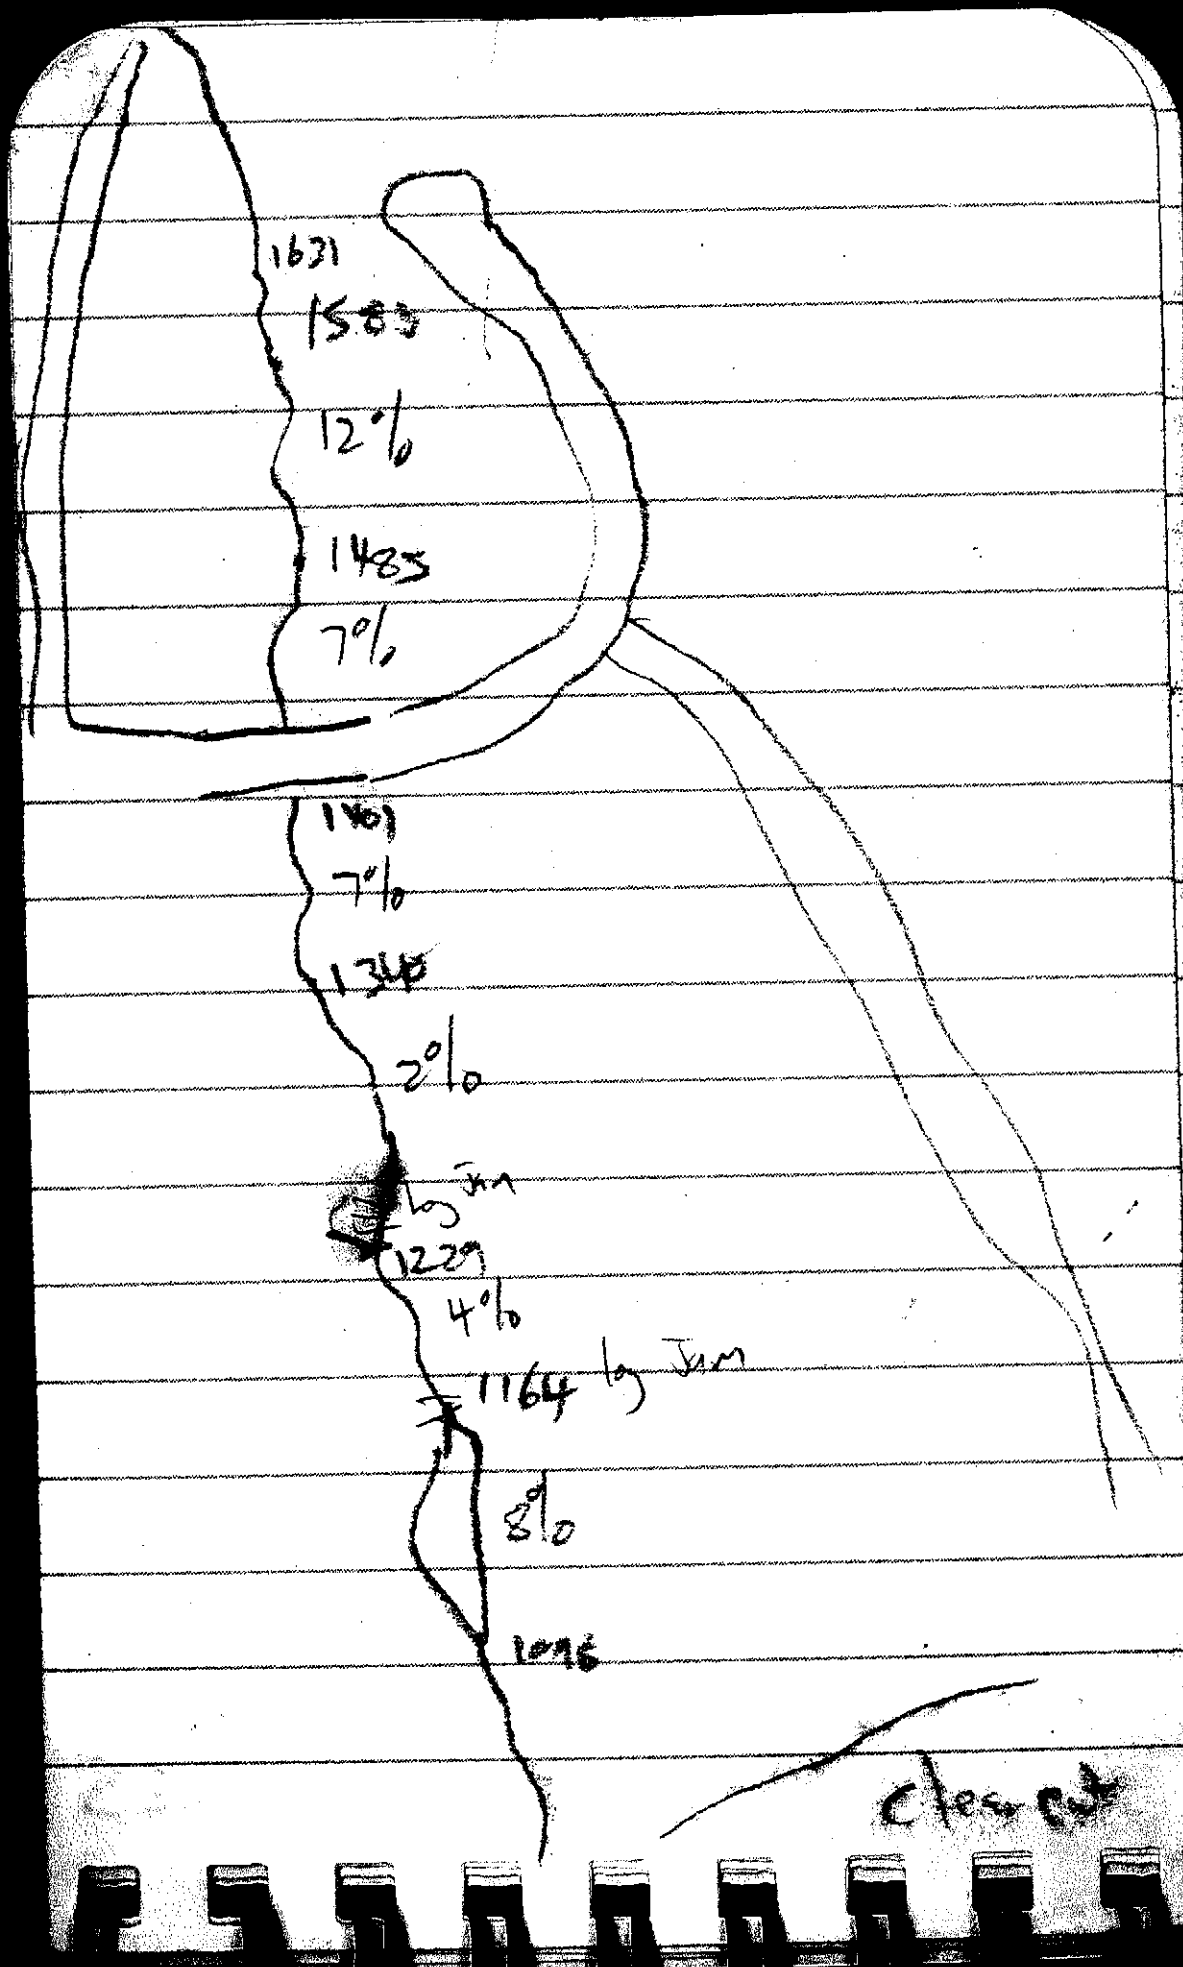 1631
1583
12%
1485
7%
1401
7%
1340
2%
log Jam
1229
4%
1164 log Jam
8%
1096
clear cut